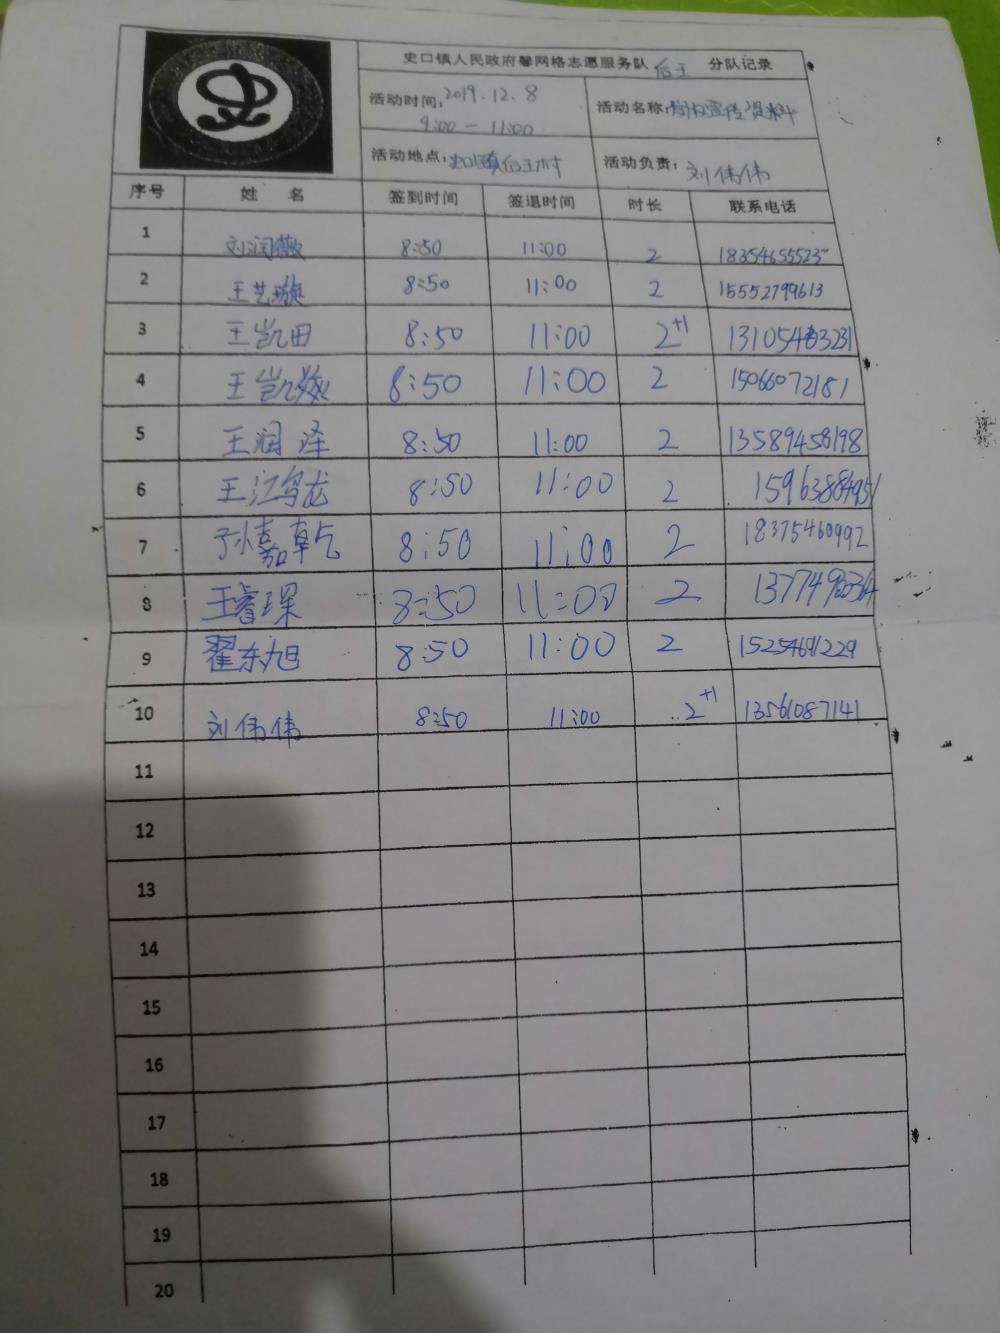 史口镇人民政府馨网格志愿服务队 后王 分队记录
活动时间: 2019.12.8 活动名称: 宣传资料
9:00 — 11:00
活动地点: 史口镇后王村 活动负责: 刘伟伟
序号 姓 名 签到时间 签退时间 时长 联系电话
1 刘润薇 8:50 11:00 2
2 王艺璇 8:50 11:00 2 15552799613
3 王凯田 8:50 11:00 2+1
4 王凯 8:50 11:00 2 15066072181
5 王润泽 8:50 11:00 2 13589458198
6 王江鸟龙 8:50 11:00 2 15963884951
7 孙嘉乾 8:50 11:00 2 18375460992
8 王睿琛 8:50 11:00 2
9 翟东旭 8:50 11:00 2 15254691229
10 刘伟伟 8:50 11:00 2+1 13561087141
11
12
13
14
15
16
17
18
19
20